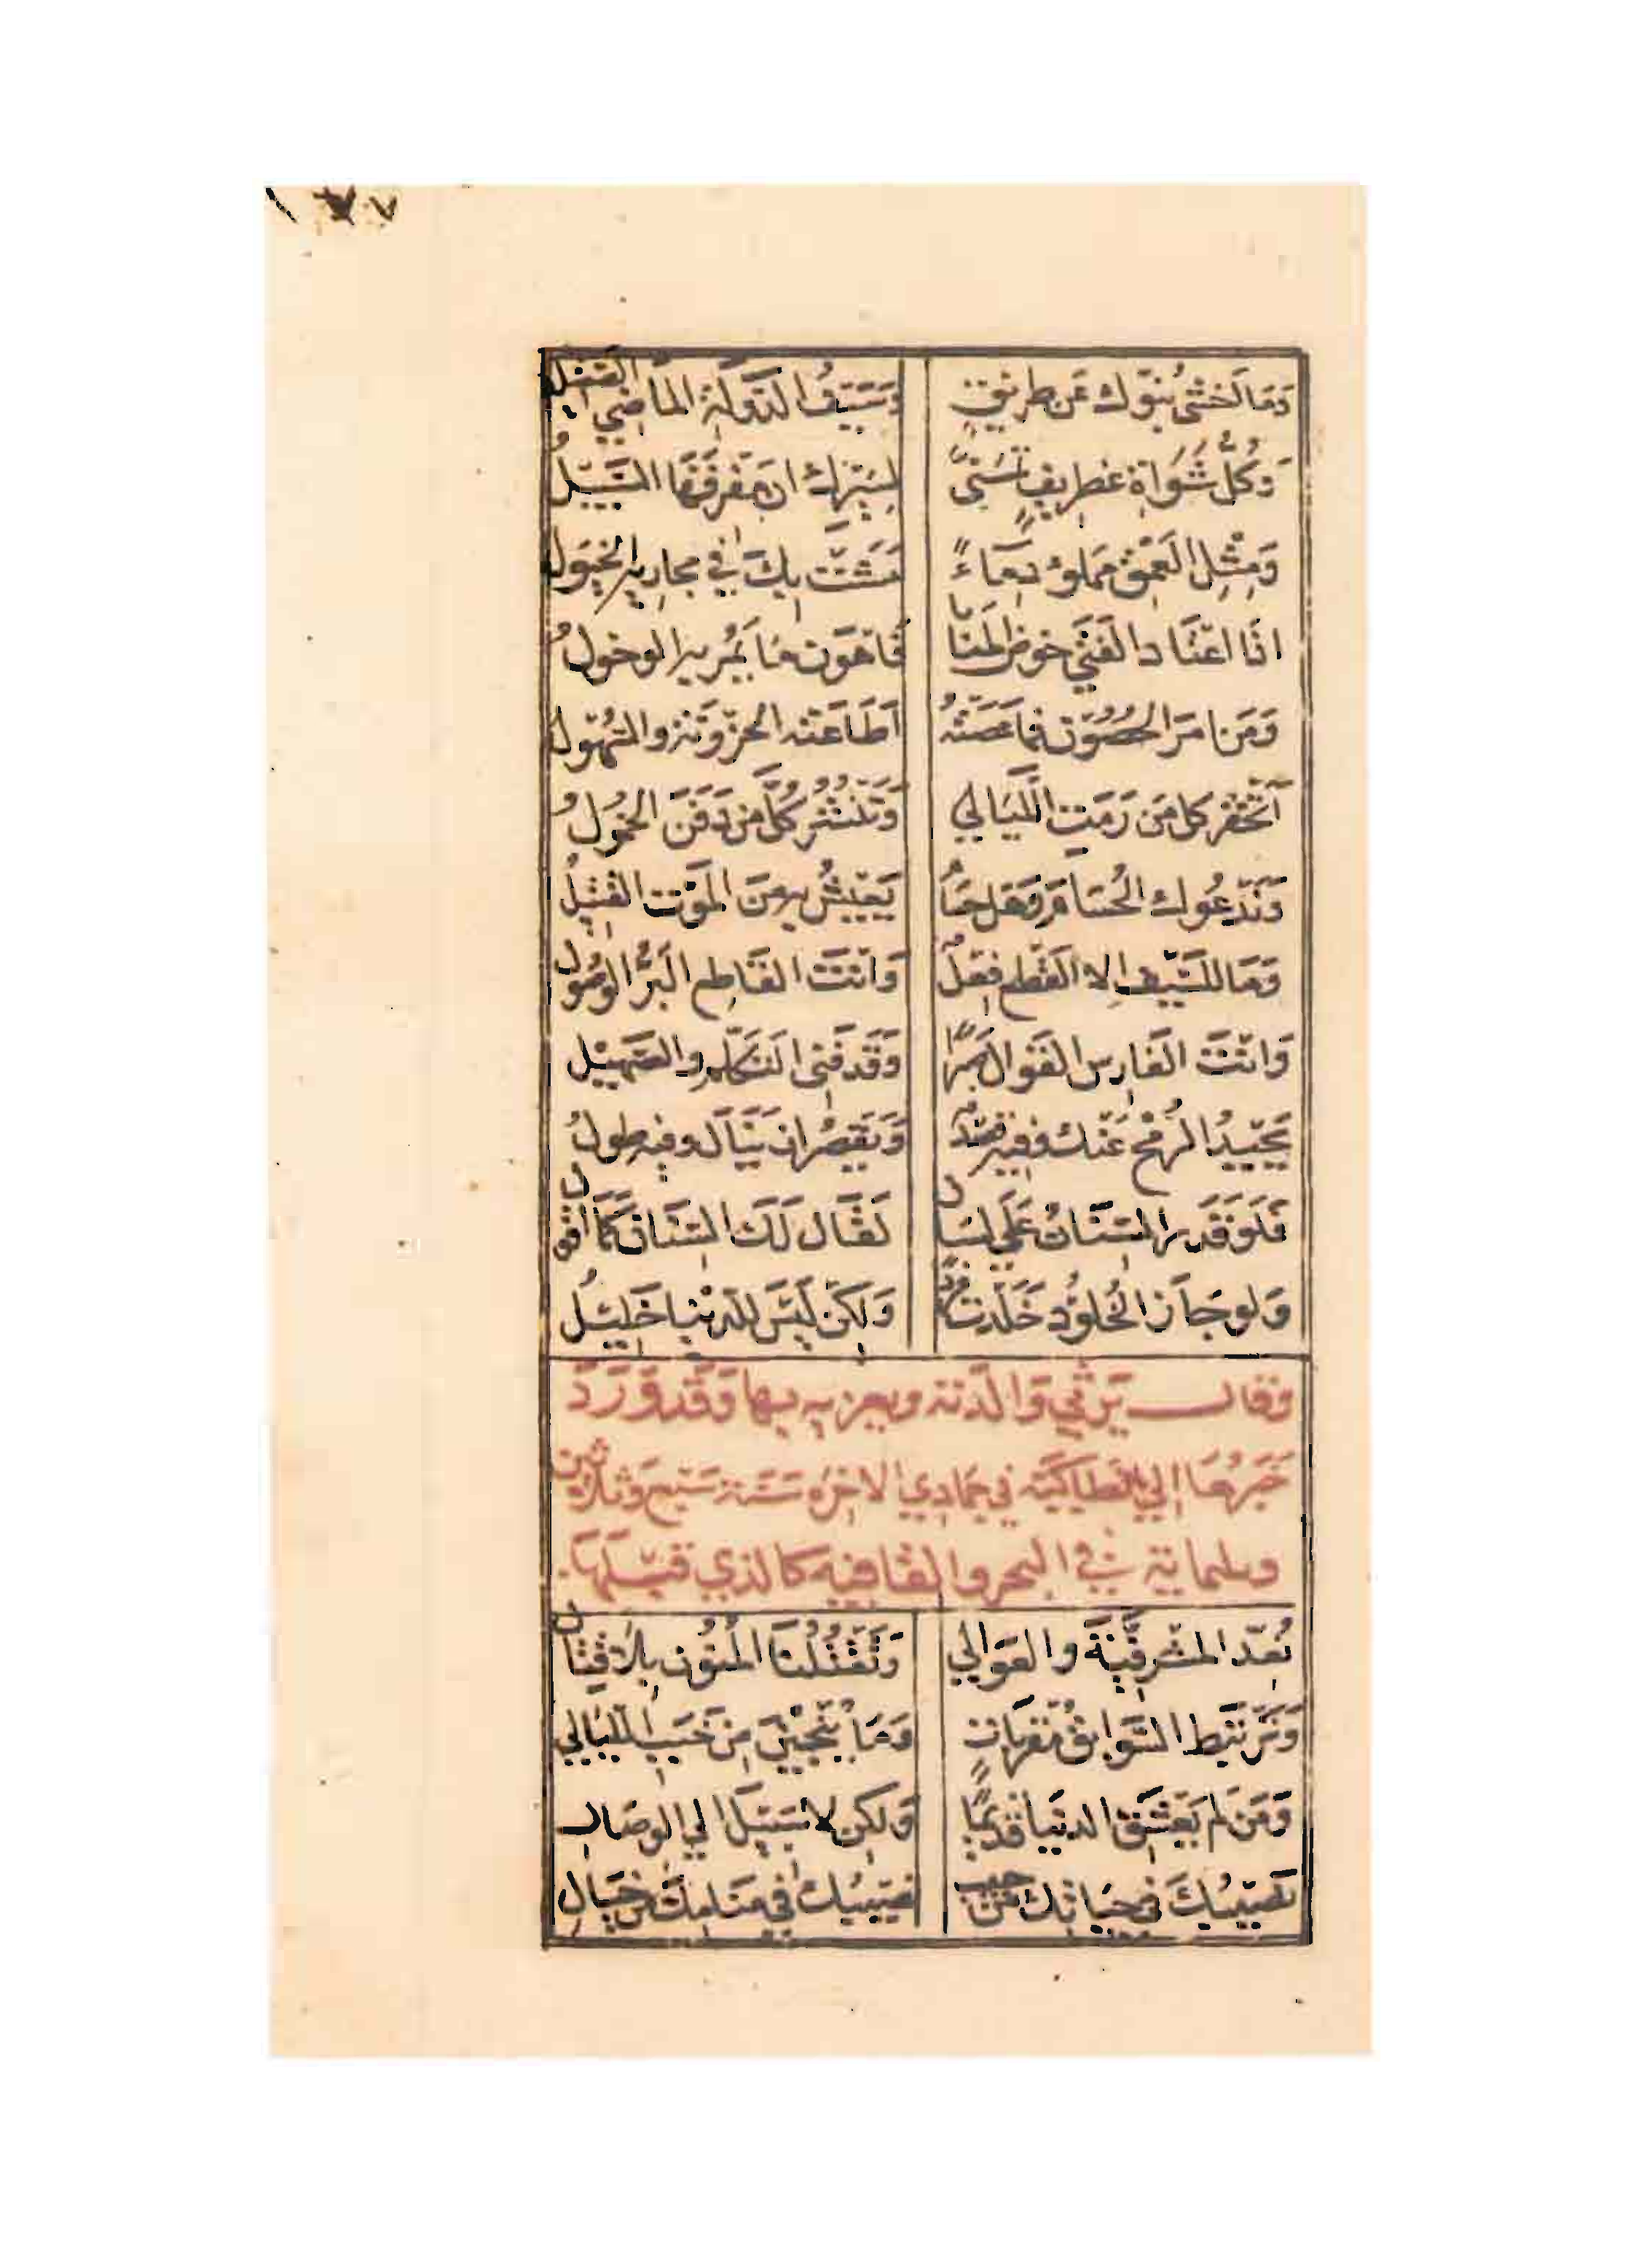 ١٧٧
وَمَا أَخْشَى نُبُوَّك عَن طَرِيقٍ وَسَيْفُ الدَّوْلَةِ المَاضِي الصَّقِيلُ
وَكُلُّ شَوَاةِ غِطرِيفٍ تَمَنَّى لِسَيْرِك أن مَفْرِقَهَا السَّبِيلُ
وَمِثْلِ العَمْقِ مَملوْءٍ دِمَاءً مَشَتْ بِكَ في مجاريهِ الخيُولُ
اذَا اعْتَادَ الفَتَى خوضَ المَنَايا فَاَهْوَن مَا يَمُر بهِ الوحولُ
وَمَن اَمَرَ الحُصُوْن فمَا عَصَتْهُ أَطَاعَتْه الحزُوْنَة والسُّهُول
أَتَخْفِر كل مَن رَمَتِ اللَّيَالي وَتَنْشُرُ كُلَّ مَن دَفَنَ الخُمُولُ
وَنَدْعُوك الحُسَامَ وَهَل حُسَامٌ يَعِيْشُ بِهِ مِنَ المَوْت القَتِيلُ
وَمَا للسَّيْفِ إلا القَطْع فِعْلٌ وَانْتَ القَاطِع البَرُّ الوَصُولُ
وَانْتَ الفَارِس القَوال صَبْرًا وَقَد فَنِي التَّكَلُّم والصَّهِيْلُ
يَحِيْدُ الرُّمْح عَنْك وفيه قصْدٌ وَيَقصُر ان يَنَال وفيه طولُ
فَلَو قَدَر السِّنَانُ عَلَى لسَان لَقَال لَكَ السِّنَان كَمَا أقول
وَلو جَازَ الخُلوْد خَلَدْت فردًا وَلكِن لَيْسَ للدُّنْيا خَلِيْلُ
وقال يَرْثِي وَالدَتَه ويعزيه بها وَقَد وَرَدَ
خَبَرُهَا إلى انطاكيَّه في جمادي الاخِرَه سَنَة سَبْع وَثلاثين
وثلثماية في البحر والقافيه كالذي قبْلَهَا.
نُعِدّ المَشْرَفِيَّةَ والعَوَالي وَتَقْتُلُنَا المَنُون بِلا قِتَال
وَنَرْتَبِط السَّوَابِقَ مُقْرَبَاتٍ وَمَا يُنْجِيْنَ مِن خَبَبِ اللَّيَالي
وَمَن لَم يَعْشَقِ الدنيَا قديمًا وَلكِن لا سَبيْلَ إلي الوِصَال
نَصِيْبُكَ في حَيَاتِك مِن حبيب نصِيْبُك في مَنَامِكَ مِن خيَالِ